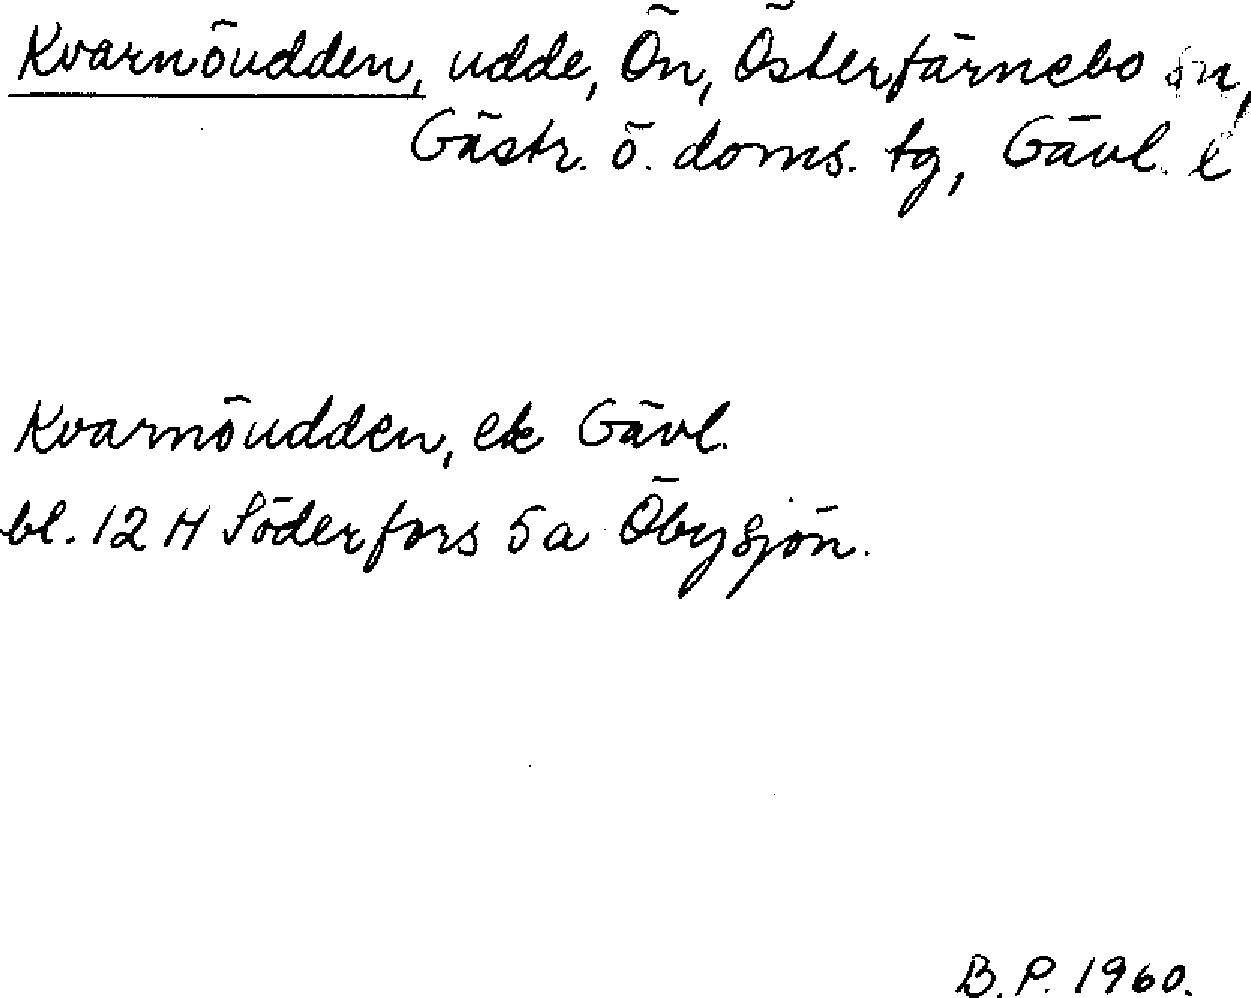 Kvarnöudden, udde, Ön, Österfärnebo sn,
Gästr. ö. doms. tg, Gävl. l
Kvarnöudden, ek Gävl.
bl. 12 H Söderfors 5 a Öbysjön.
B. P. 1960.